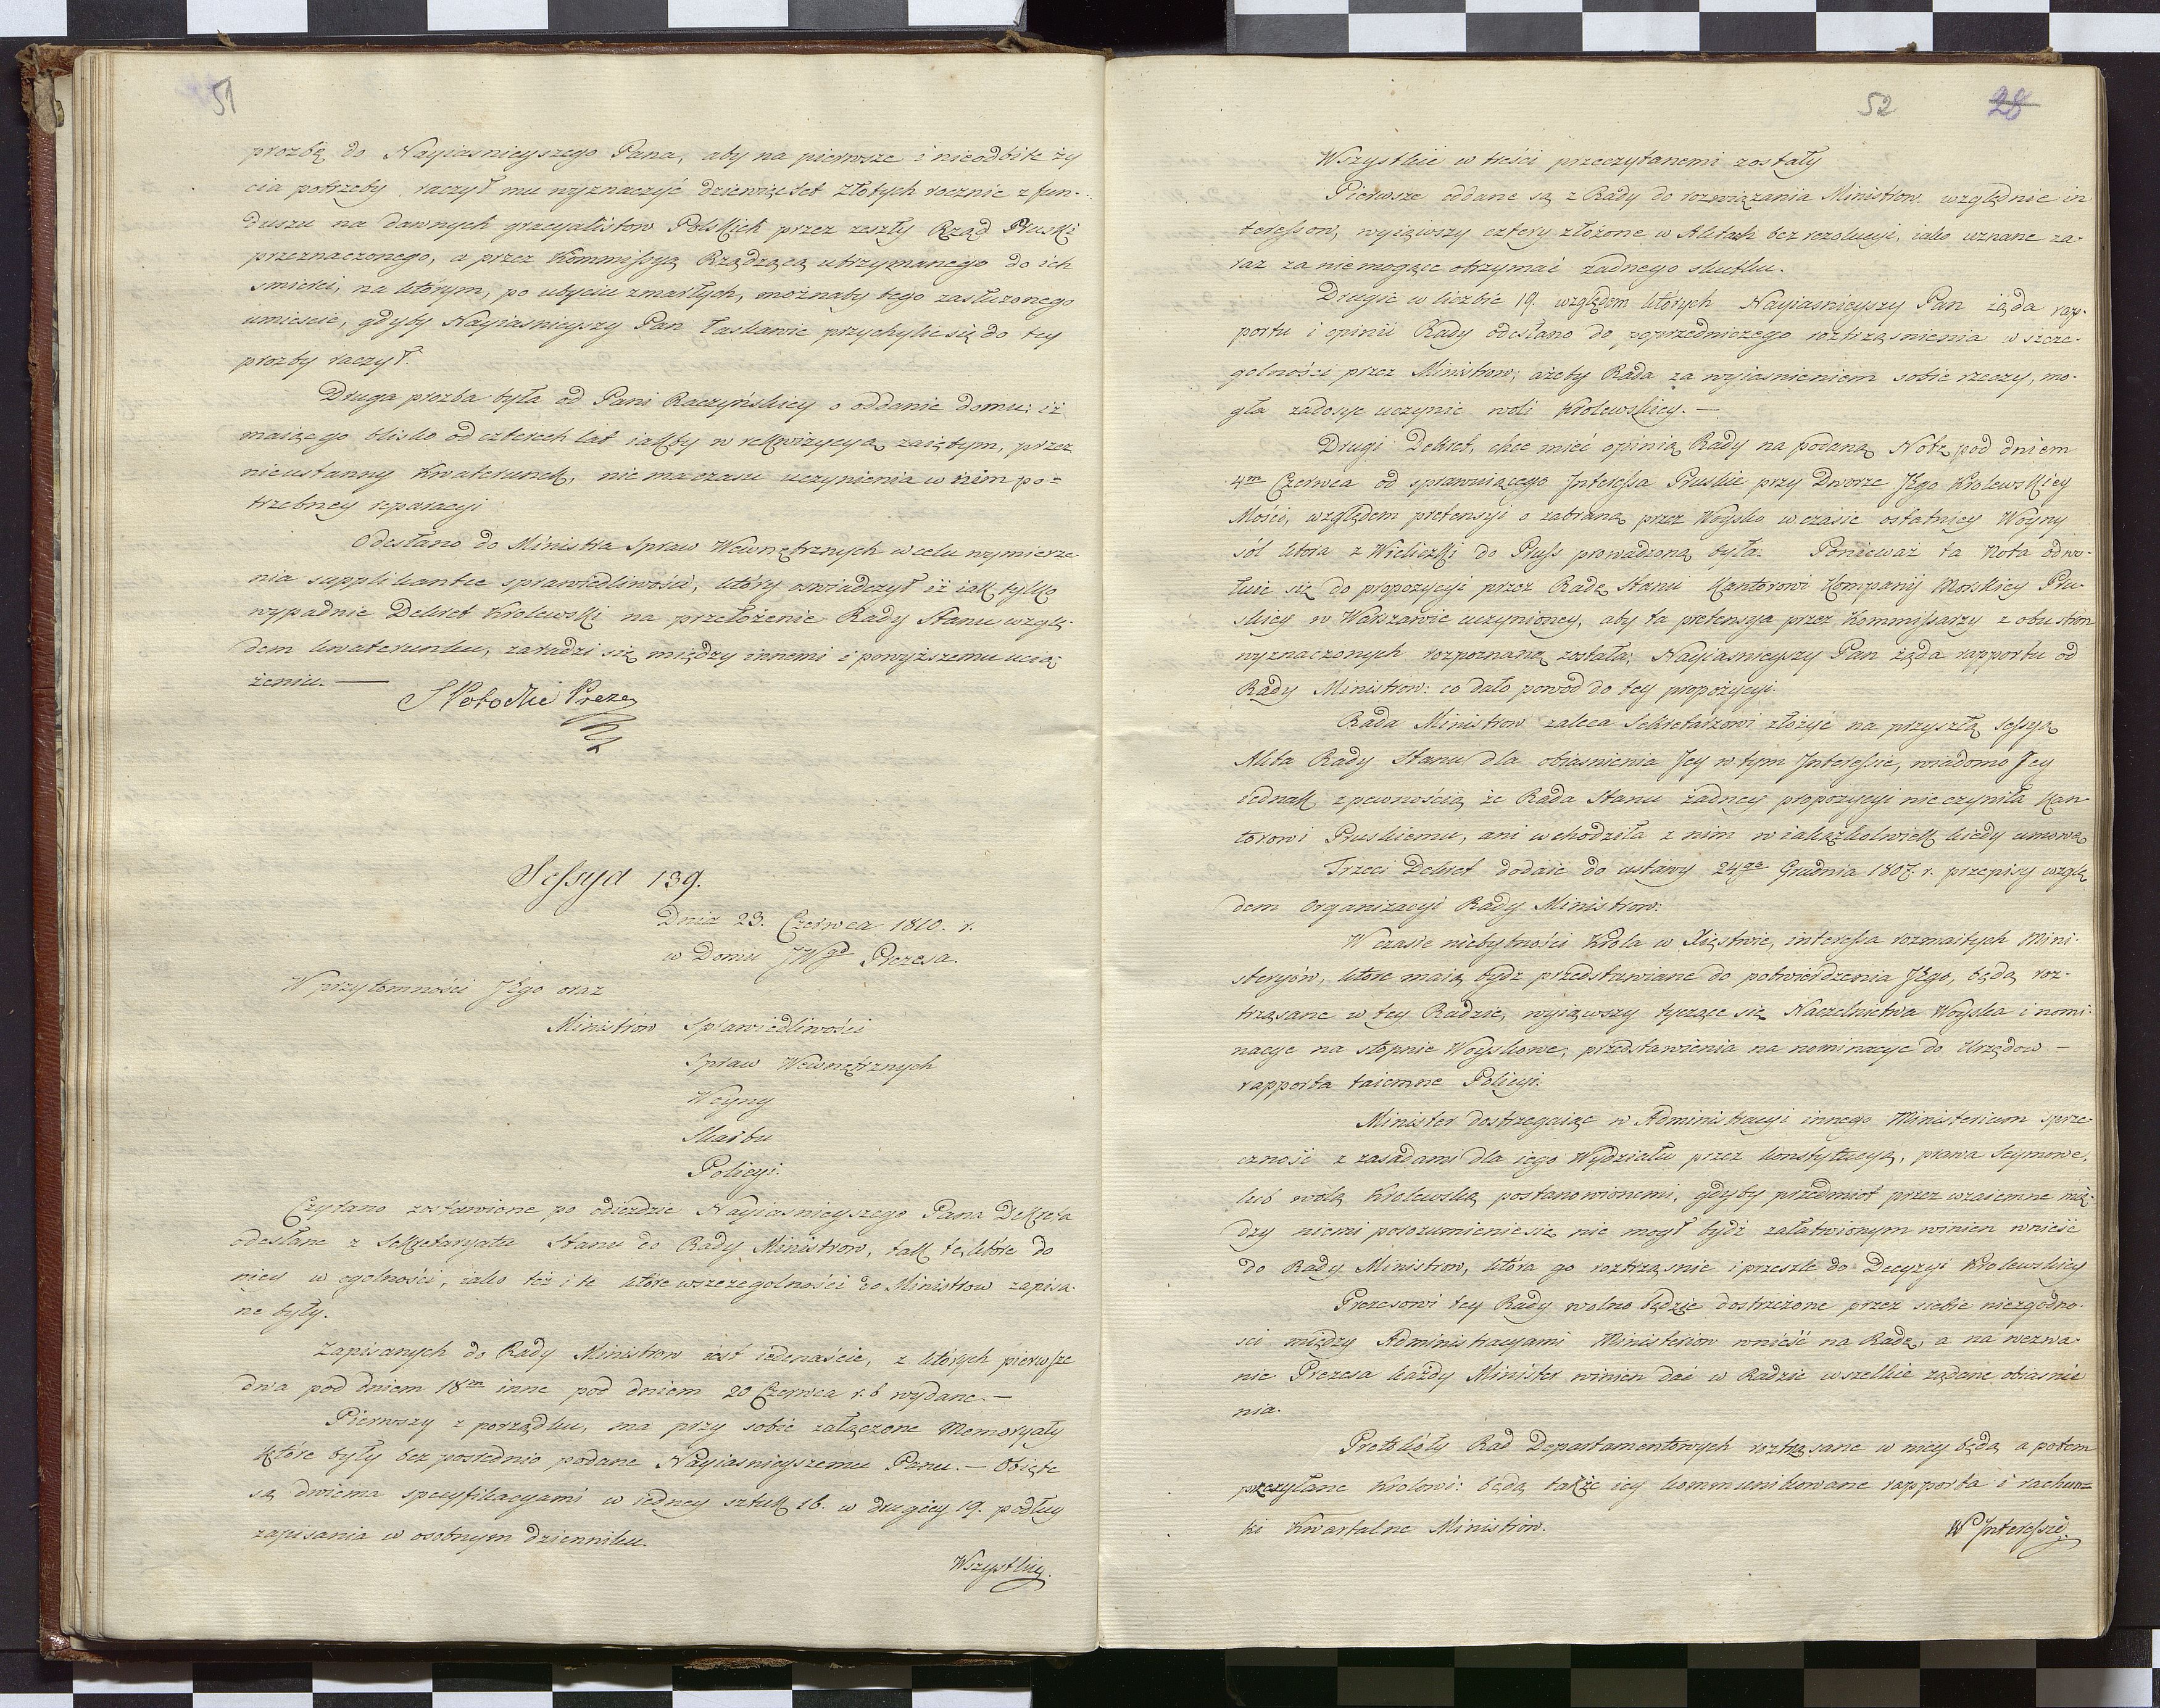 51
prozbę do Nayiasnieyszego Pana, aby na pierwsze i nieodbite ży
cia potrzeby raczył mu wyznaczyć dziewięset Złotych rocznie z fun-
duszu na dawnych gracyalistow Polskich przez zeszły Rząd Pruski
przeznaczonego, a przez Kommissyą Rządzącą utrzymanego do ich
smierci, na którym, po ubyciu zmarłych, możnaby tego zasłużonego
umiescic, gdyby Nayiasnieyszy Pan łaskawie przychylic się do tey
prozby raczył.
Druga prozba była od Pani Raczyńskiey o oddanie domu; iż
maiącego blisko od czterech lat iakby w rekwizycyą zaiętym, przez
nieustanny Kwaterunek, nie ma czasu uczynienia w nim po=
trzebney reparacyi
Odesłano do Ministra Spraw Wewnętrznych w celu wymierze-
nia supplikantce sprawiedliwości, który oswiadczył iż iak tylko
wypadnie Dekret Krolewski na przełożenie Rady Stanu wzglę-
dem kwaterunku, zaradzi się między innemi i powyższemu ucią
żeniu. —
S Potocki Prezes
Sessya 139.
Dnia 23. Czerwca 1810. r.
w Domu JWgo Prezesa.
W przytomności Jego oraz
Ministrów Sprawiedliwości
Spraw Wewnętrznych
Woyny
Skarbu
Policyi.
Czytano zostawione po odieździe Nayiasnieyszego Pana Dekreta
odesłane z Sekretaryatu Stanu do Rady Ministrow, tak te, które do
niey w ogolności, iako też i te które w szczegolności do Ministrow zapisa-
ne były.
Zapisanych do Rady Ministrow iest iedenaście, z których pierwsze
dwa pod dniem 18m inne pod dniem 20 Czerwca r. b wydane. —
Pierwszy z porządku, ma przy sobie załączone Memoryały
które były bez posrednio podane Nayiasnieyszemu Panu. — Obięte
są dwiema specyfikacyami w iedney sztuk 16. w drugiey 19. podług
zapisania w osobnym dzienniku.
Wszystkie.
52 28
Wszystkie w treści przeczytanemi zostały
Pierwsze oddane są z Rady do rozwiązania Ministrow względnie in
teressow, wyiąwszy cztery złożone w Aktach bez rezolucyi, iako uznane za-
raz za niemogące otrzymać żadnego skutku.
Drugie w liczbie 19. względem których Nayiasnieyszy Pan żąda rap-
portu i opinii Rady odesłano do poprzedniczego roztrząsnienia w szcze-
golności przez Ministrow; ażeby Rada za wyiasnieniem sobie rzeczy, mo-
gła zadosyc uczynic woli Krolewskiey. —
Drugi Dekret, chce mieć opinią Rady na podaną Notę pod dniem
4m Czerwca od sprawuiącego Interessa Pruskie przy Dworze Jego Krolewskiey
Mości, względem pretensyi o zabraną przez Woysko w czasie ostatniey Woyny
sól która z Wieliczki do Pruss prowadzoną była. Ponieważ ta Nota odwo-
łuie się do propozycyi przez Radę Stanu Kantorowi Kompanij Morskiey Pru-
skiey w Warszawie uczynioney, aby ta pretensya przez Kommissarzy z obu stron
wyznaczonych rozpoznaną została; Nayiasnieyszy Pan żąda rapportu od
Rady Ministrow: co dało powod do tey propozycyi.
Rada Ministrow zaleca Sekretarzowi złożyć na przyszłą Sessyą
Akta Rady Stanu dla obiasnienia Jey w tym Interessie, wiadomo Jey
iednak z pewnością że Rada Stanu żadney propozycyi nie czyniła Kan
torowi Pruskiemu, ani wchodziła z nim w iakążkolwiek kiedy umowę
Trzeci Dekret dodaie do ustawy 24go Grudnia 1807. r. przepisy wzglę
dem Organizacyi Rady Ministrow.
W czasie niebytności Króla w Xięstwie, interessa rozmaitych Mini-
steryów, które maią bydz przedstawiane do potwierdzenia Jego, będą roz-
trząsane w tey Radzie, wyiąwszy tyczące się Naczelnictwa Woyska i nomi-
nacye na stopnie Woyskowe; przedstawienia na nominacye do Urzędow —
rapporta taiemne Policyi.
Minister dostrzegaiąc w Administracyi innego Ministerium sprze
czność z zasadami dla iego Wydziału przez konstytucyą, prawa Seymowe,
lub wolą Krolewską postanowionemi, gdyby przedmiot przez wzaiemne mię-
dzy niemi porozumienie się nie mogł bydź załatwionym winien wnieśc
do Rady Ministrow, która go roztrząsnie i przeszle do Decyzyi Krolewskiey
Prezesowi tey Rady wolno będzie dostrzeżone przez siebie niezgodno-
sci między Administracyami Ministeriow wnieść na Radę, a na wezwa-
nie Prezesa każdy Minister winien dać w Radzie wszelkie żądane obiasnie
nia.
Protokóły Rad Departamentowych roztrząsane w niey będą a potem
przesyłane Krolowi: będą także iey kommunikowane rapporta i rachun=
ki Kwartalne Ministrów.
W Interessie